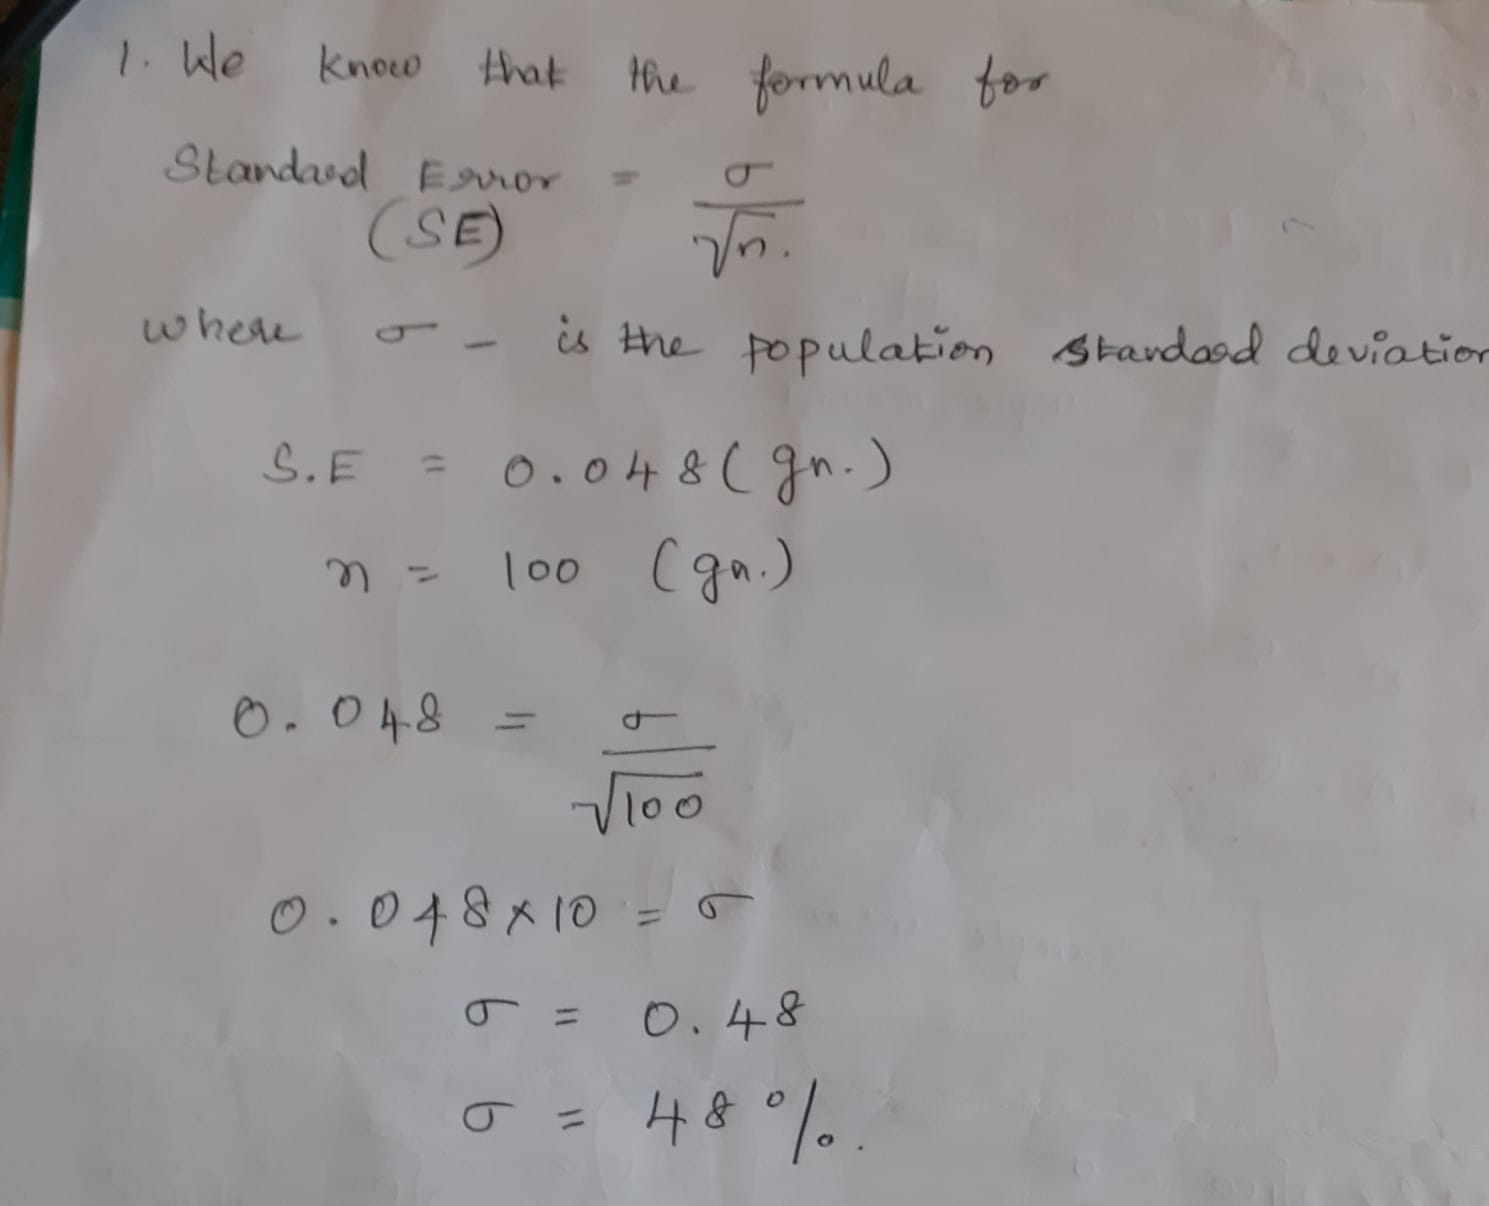 1. We know that the formula for
Standard Error = σ/√n.
(SE)
where σ - is the population standard deviation
S.E = 0.048 (gn.)
n = 100 (gn.)
0.048 = σ/√100
0.048 × 10 = σ
σ = 0.48
σ = 48 %.